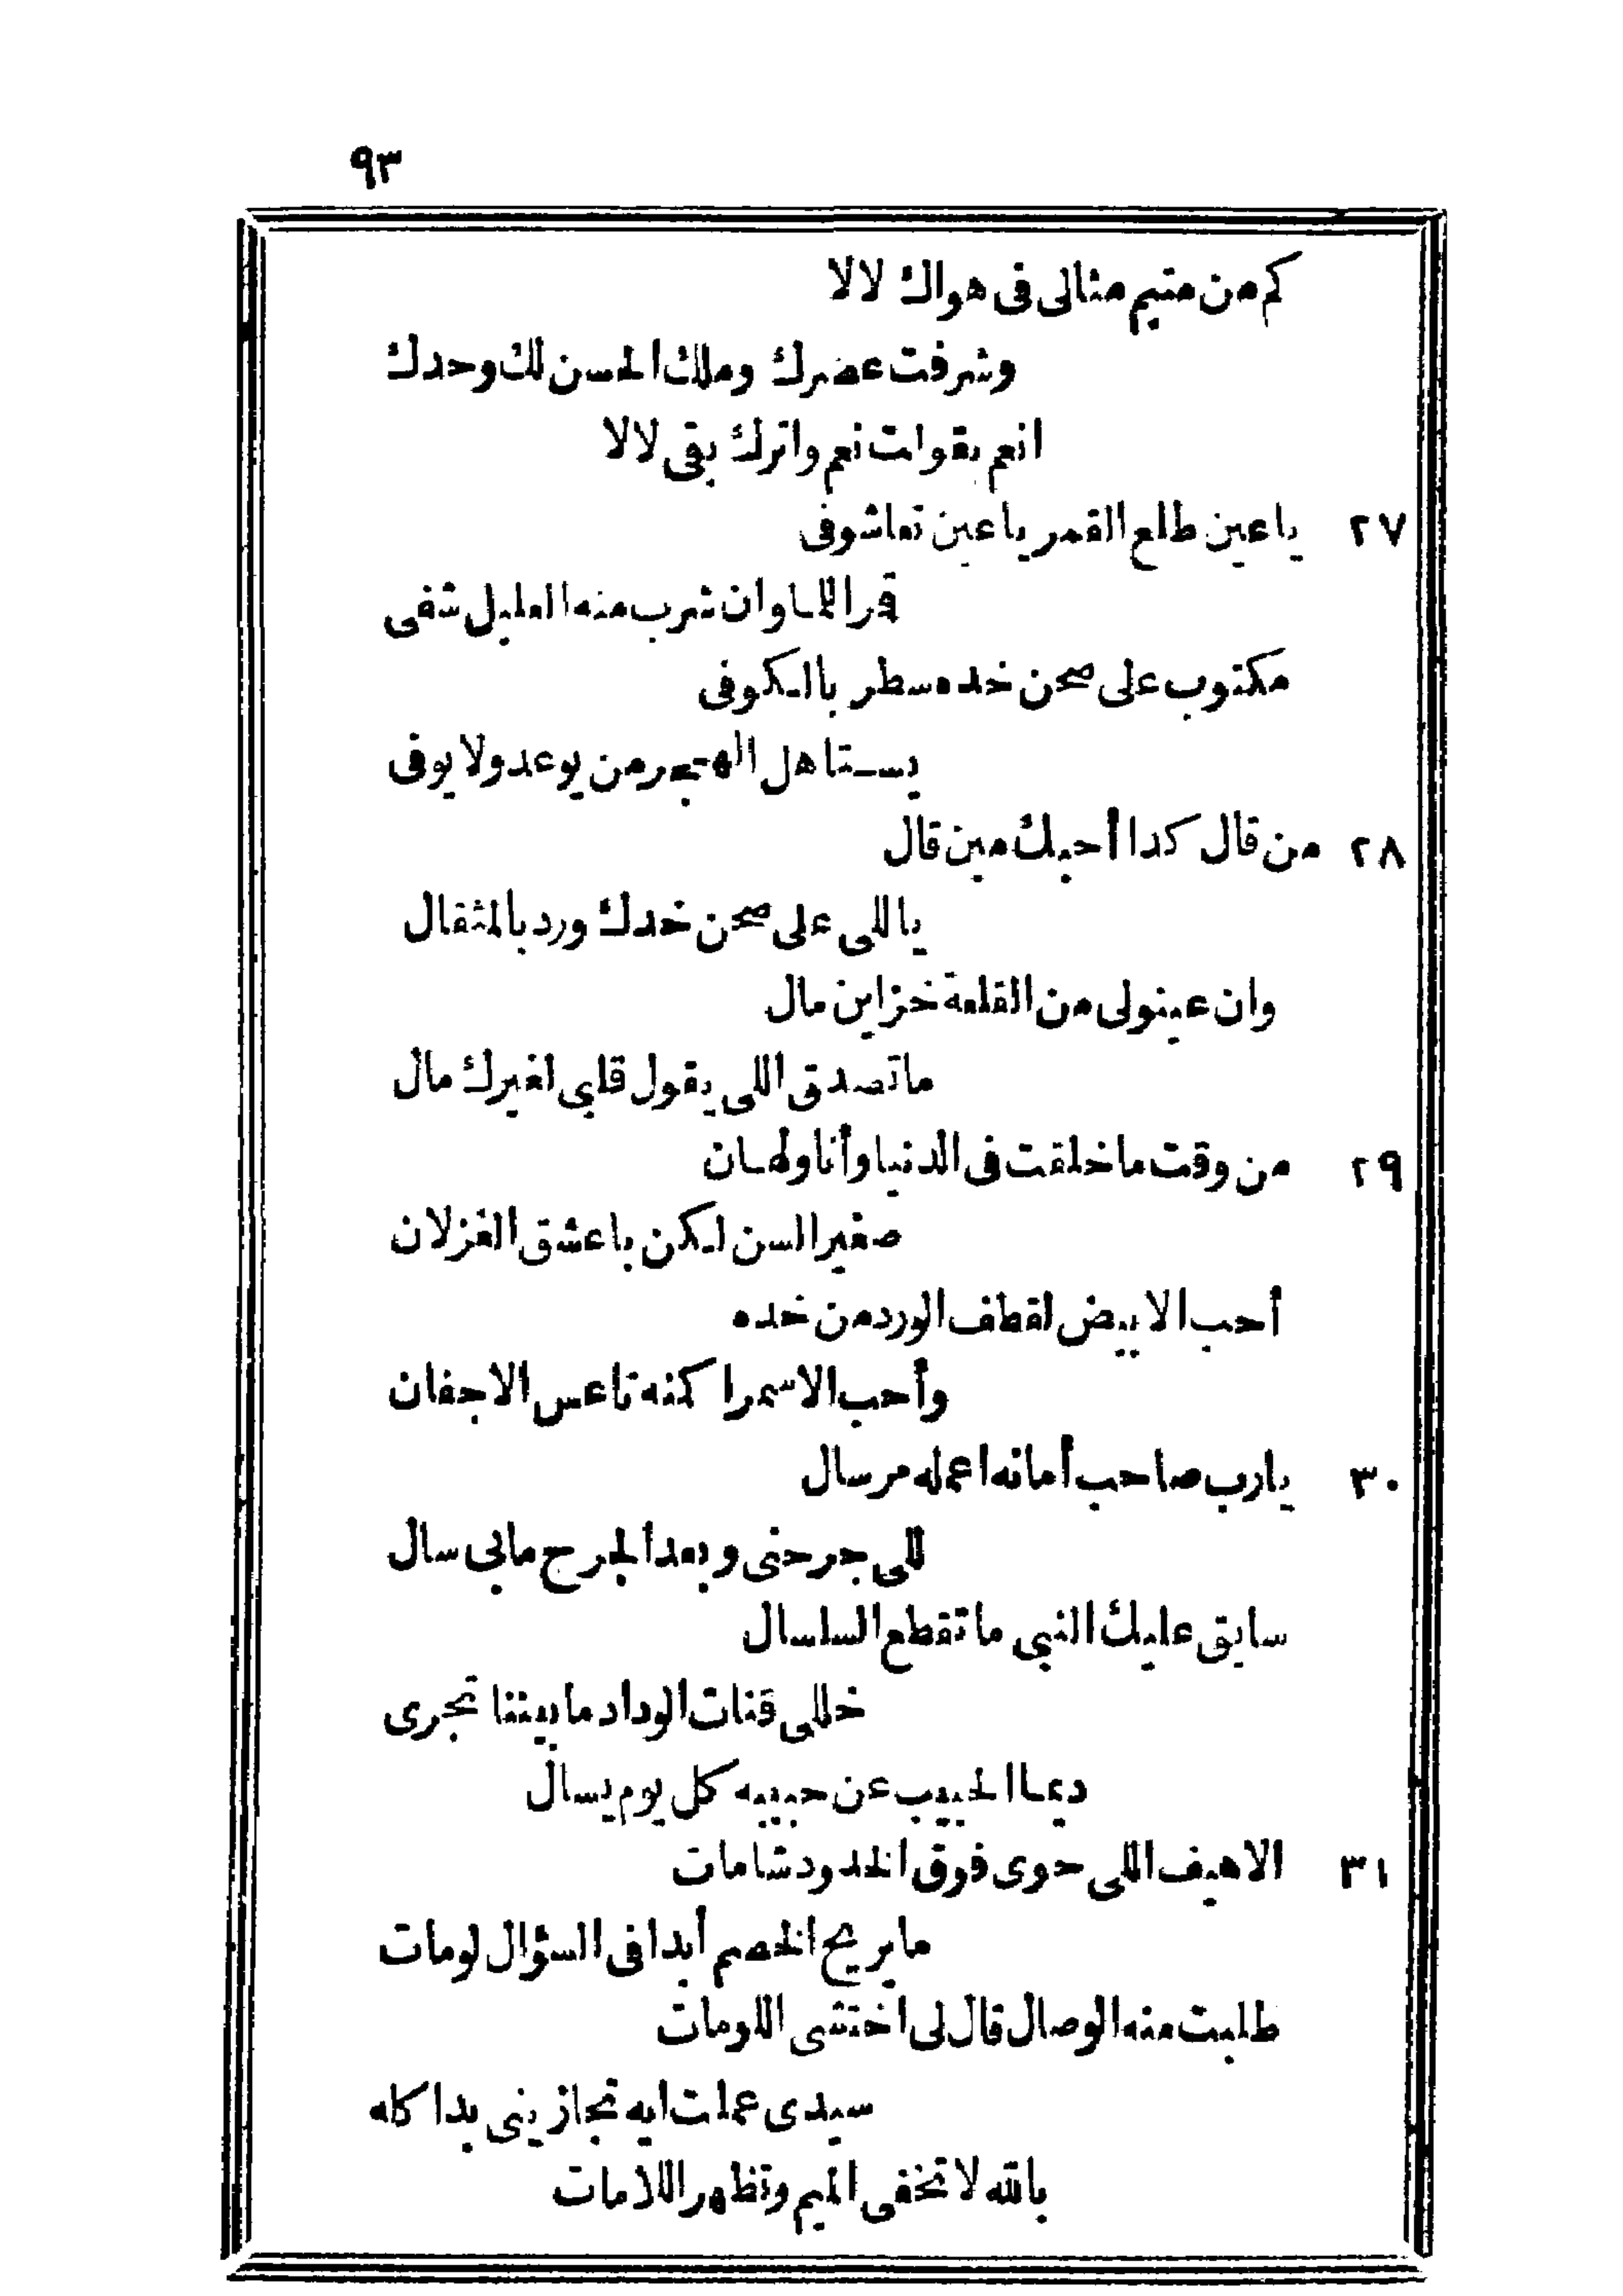 ٩٣
كم من متيم مثالى فى هواك لالا
وشرفت عصرك وملك الحسن لك وحدك
انعم بقولت نعم واترك بقى لالا
٢٧ ياعين طلع القمر ياعين تعاشوفى
قرا اللما وان شرب منه العليل شفى
مكتوب على صحن خده سطر باالكوفى
يستاهل الهجر من يوعد ولا يوفى
٢٨ من قال كدا أحبك مين قال
ياللى على صحن خدك ورد بالمثقال
وان عينولى من القلعة خزاين مال
ماتصدق اللى يقول قلبى لغيرك مال
٢٩ من وقت ماخلقت فى الدنيا وأنا ولهان
صغير السن لكن باعشق الغزلان
أحب الابيض لقطف الورد من خده
وأحب الاسمر اكنه ناعس الاجفان
٣٠ يارب صاحب أمانه اعمله مرسال
للى جرحنى وبعد الجرح مابى سال
سايق عليك النبى ماتقطع السلسال
خللى قنات الوداد مابيننا تجرى
ديما الحبيب عن حبيبه كل يوم يسال
٣١ الاهيف اللى حوى فوق الخدود شامات
مايريح الخصم أبدا فى السؤال لومات
طلبت منه الوصال قال لى اختشى اللومات
سيدى عملت ايه تجازينى بدا كله
بالله لاتخفى الميم وتظهر اللامات